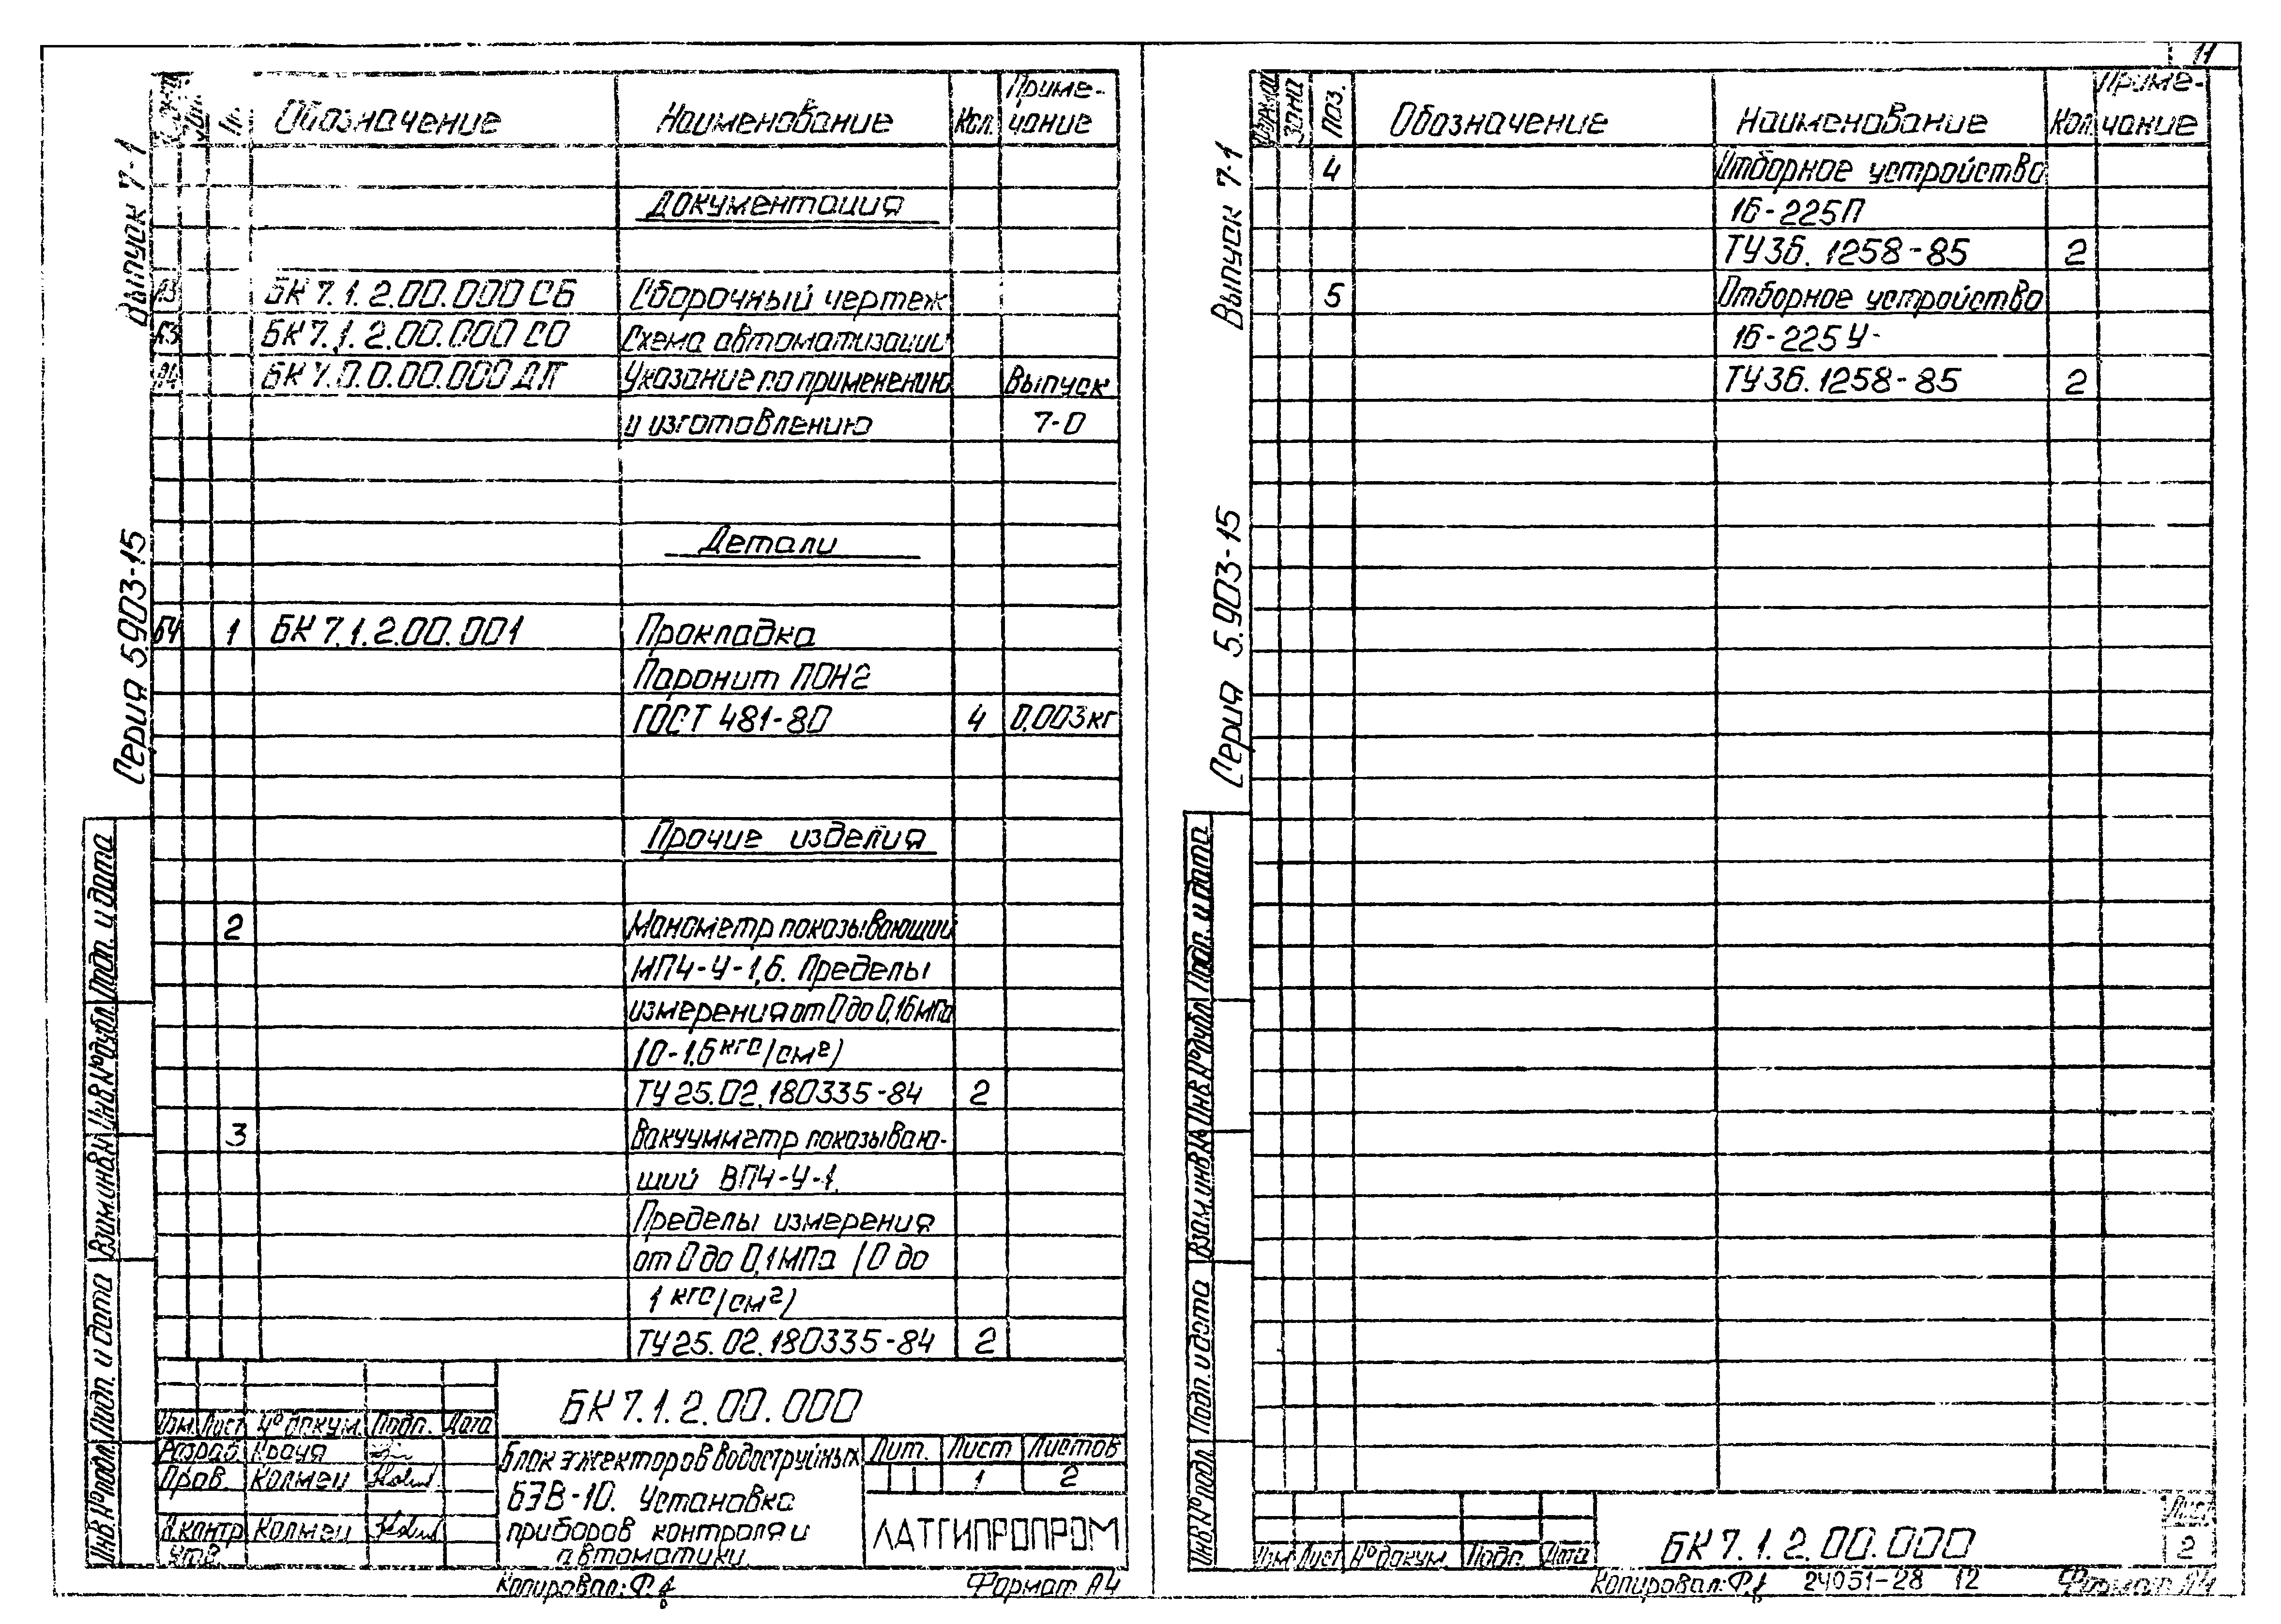 11
Выпуск 7-1
Серия 5.903-15
Обозначение Наименование Кол. Приме-
чание
Документация
А3 БК 7.1.2.00.000 СБ Сборочный чертеж
А3 БК 7.1.2.00.000 СО Схема автоматизации
А4 БК 7.0.0.00.000 ДП Указание по применению Выпуск
и изготовлению 7-0
Детали
БЧ 1 БК 7.1.2.00.001 Прокладка
Паронит ПОН2
ГОСТ 481-80 4 0,003кг
Прочие изделия
2 Манометр показывающий
МП4-У-1,6. Пределы
измерения от 0 до 0,16 МПа
(0-1,6 кгс/см²)
ТУ 25.02.180335-84 2
3 Вакуумметр показываю-
щий ВП4-У-1.
Пределы измерения
от 0 до 0,1 МПа (0 до
1 кгс/см²)
ТУ 25.02.180335-84 2
Инв.№ подл. Подп. и дата Взам.инв.№ Инв.№ дубл. Подп. и дата
Изм. Лист № докум. Подп. Дата
Разраб. Крауя
Пров. Калмец
Н.контр Калмец
Утв.
БК 7.1.2.00.000
Блок эжекторов водоструйных
БЭВ-10. Установка
приборов контроля и
автоматики.
Лит. Лист Листов
1 2
ЛАТГИПРОПРОМ
Копировал: Формат А4
Выпуск 7-1
Серия 5.903-15
Формат Зона Поз. Обозначение Наименование Кол. Приме-
чание
4 Отборное устройство
16-225П
ТУ 36.1258-85 2
5 Отборное устройство
16-225 У
ТУ 36.1258-85 2
Инв.№ подл. Подп. и дата Взам.инв.№ Инв.№ дубл. Подп. и дата
Изм. Лист № докум. Подп. Дата
БК 7.1.2.00.000
Лист
2
Копировал: 24051-28 12 Формат А4